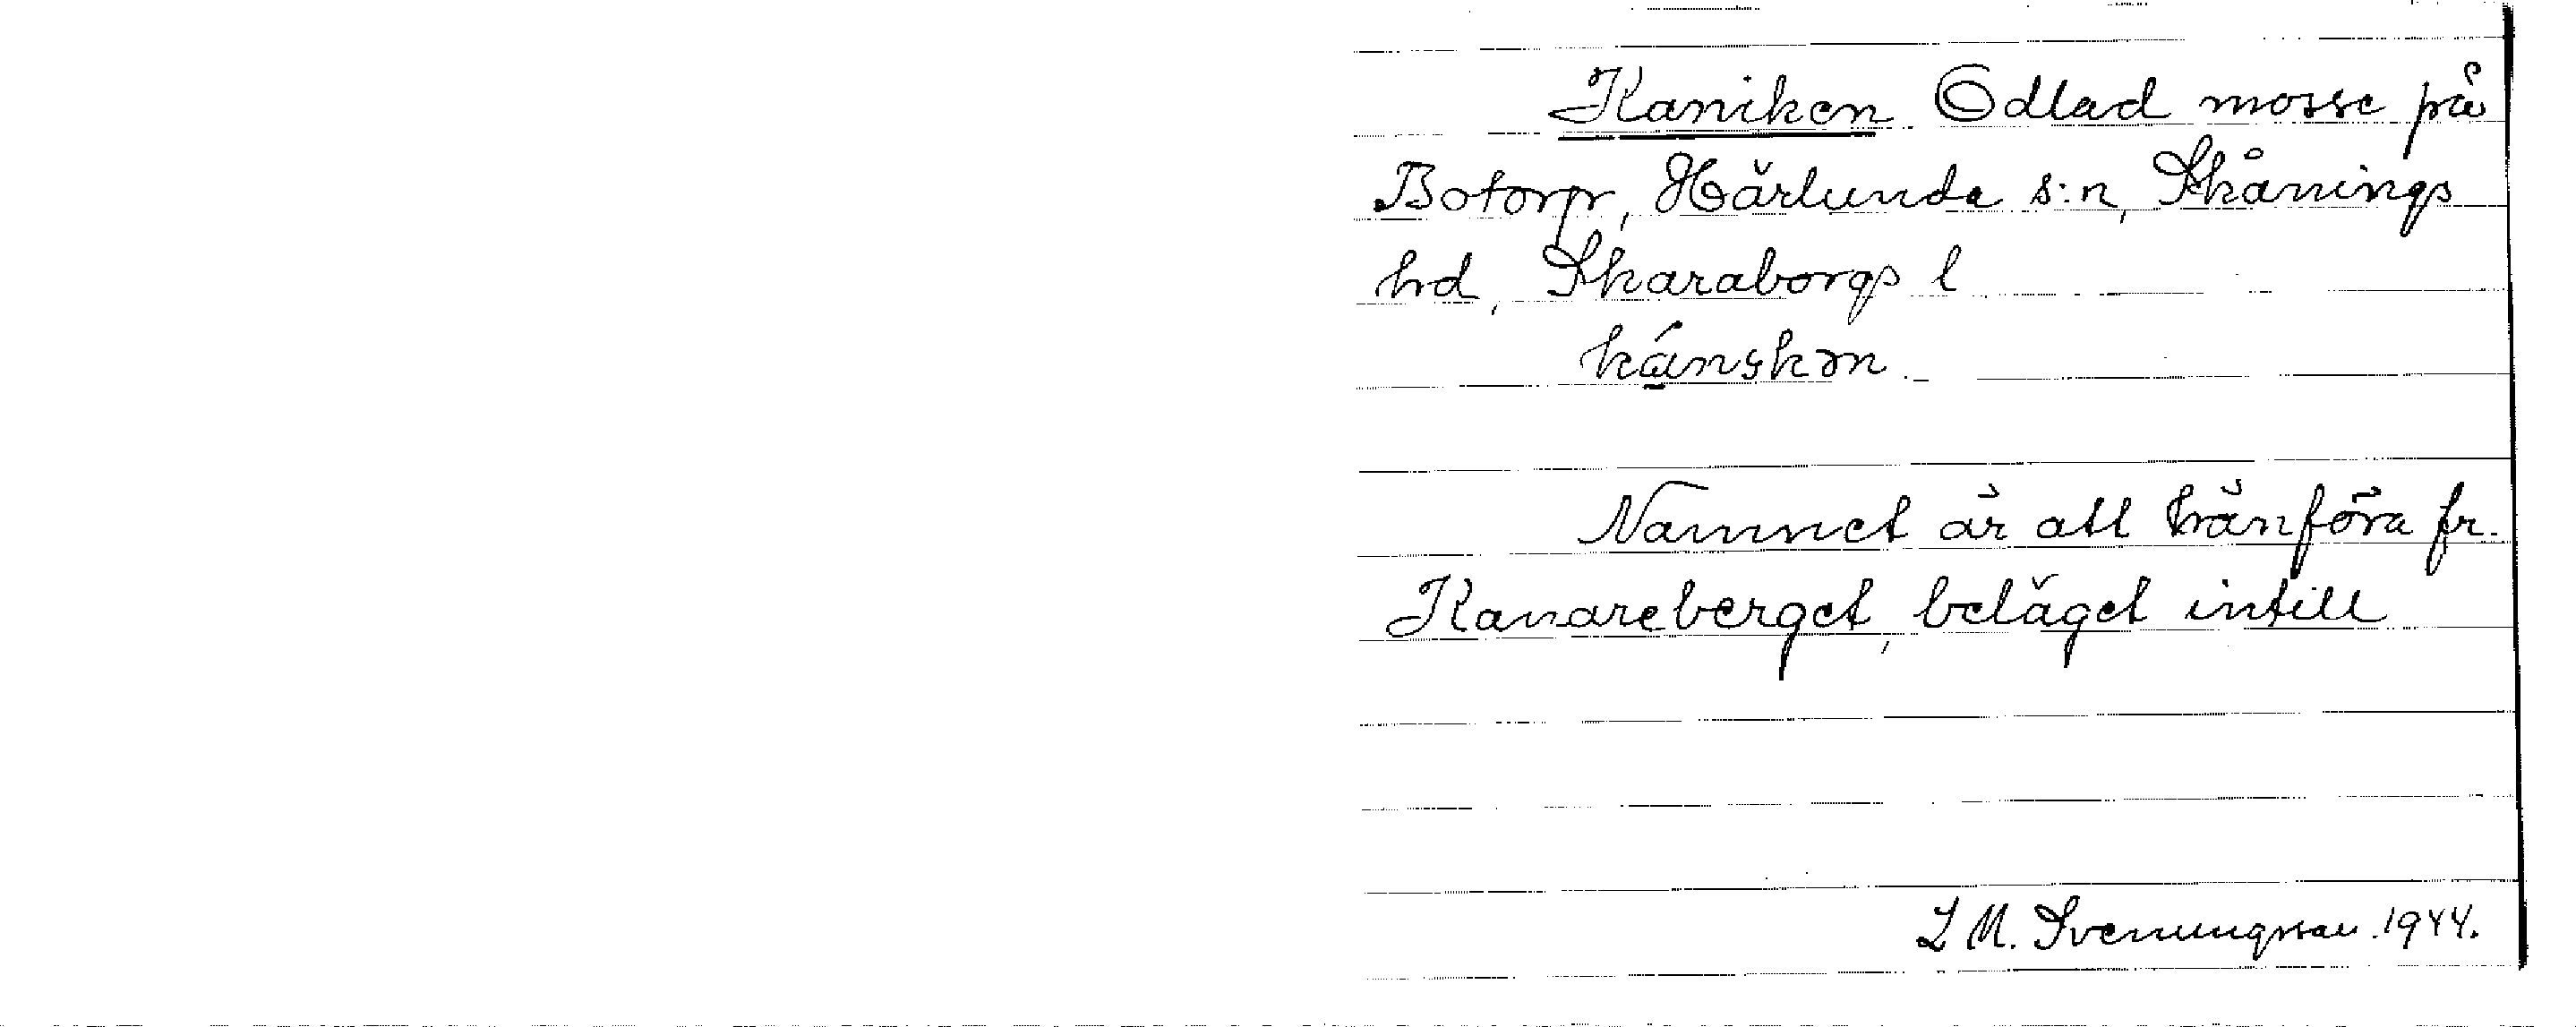 Kaniken Odlad mosse på
Botorp, Härlunda s:n, Skånings
hd, Skaraborgs l
Namnet är att hänföra fr.
Kanareberget, beläget intill
L M. Svenungsson. 1944.